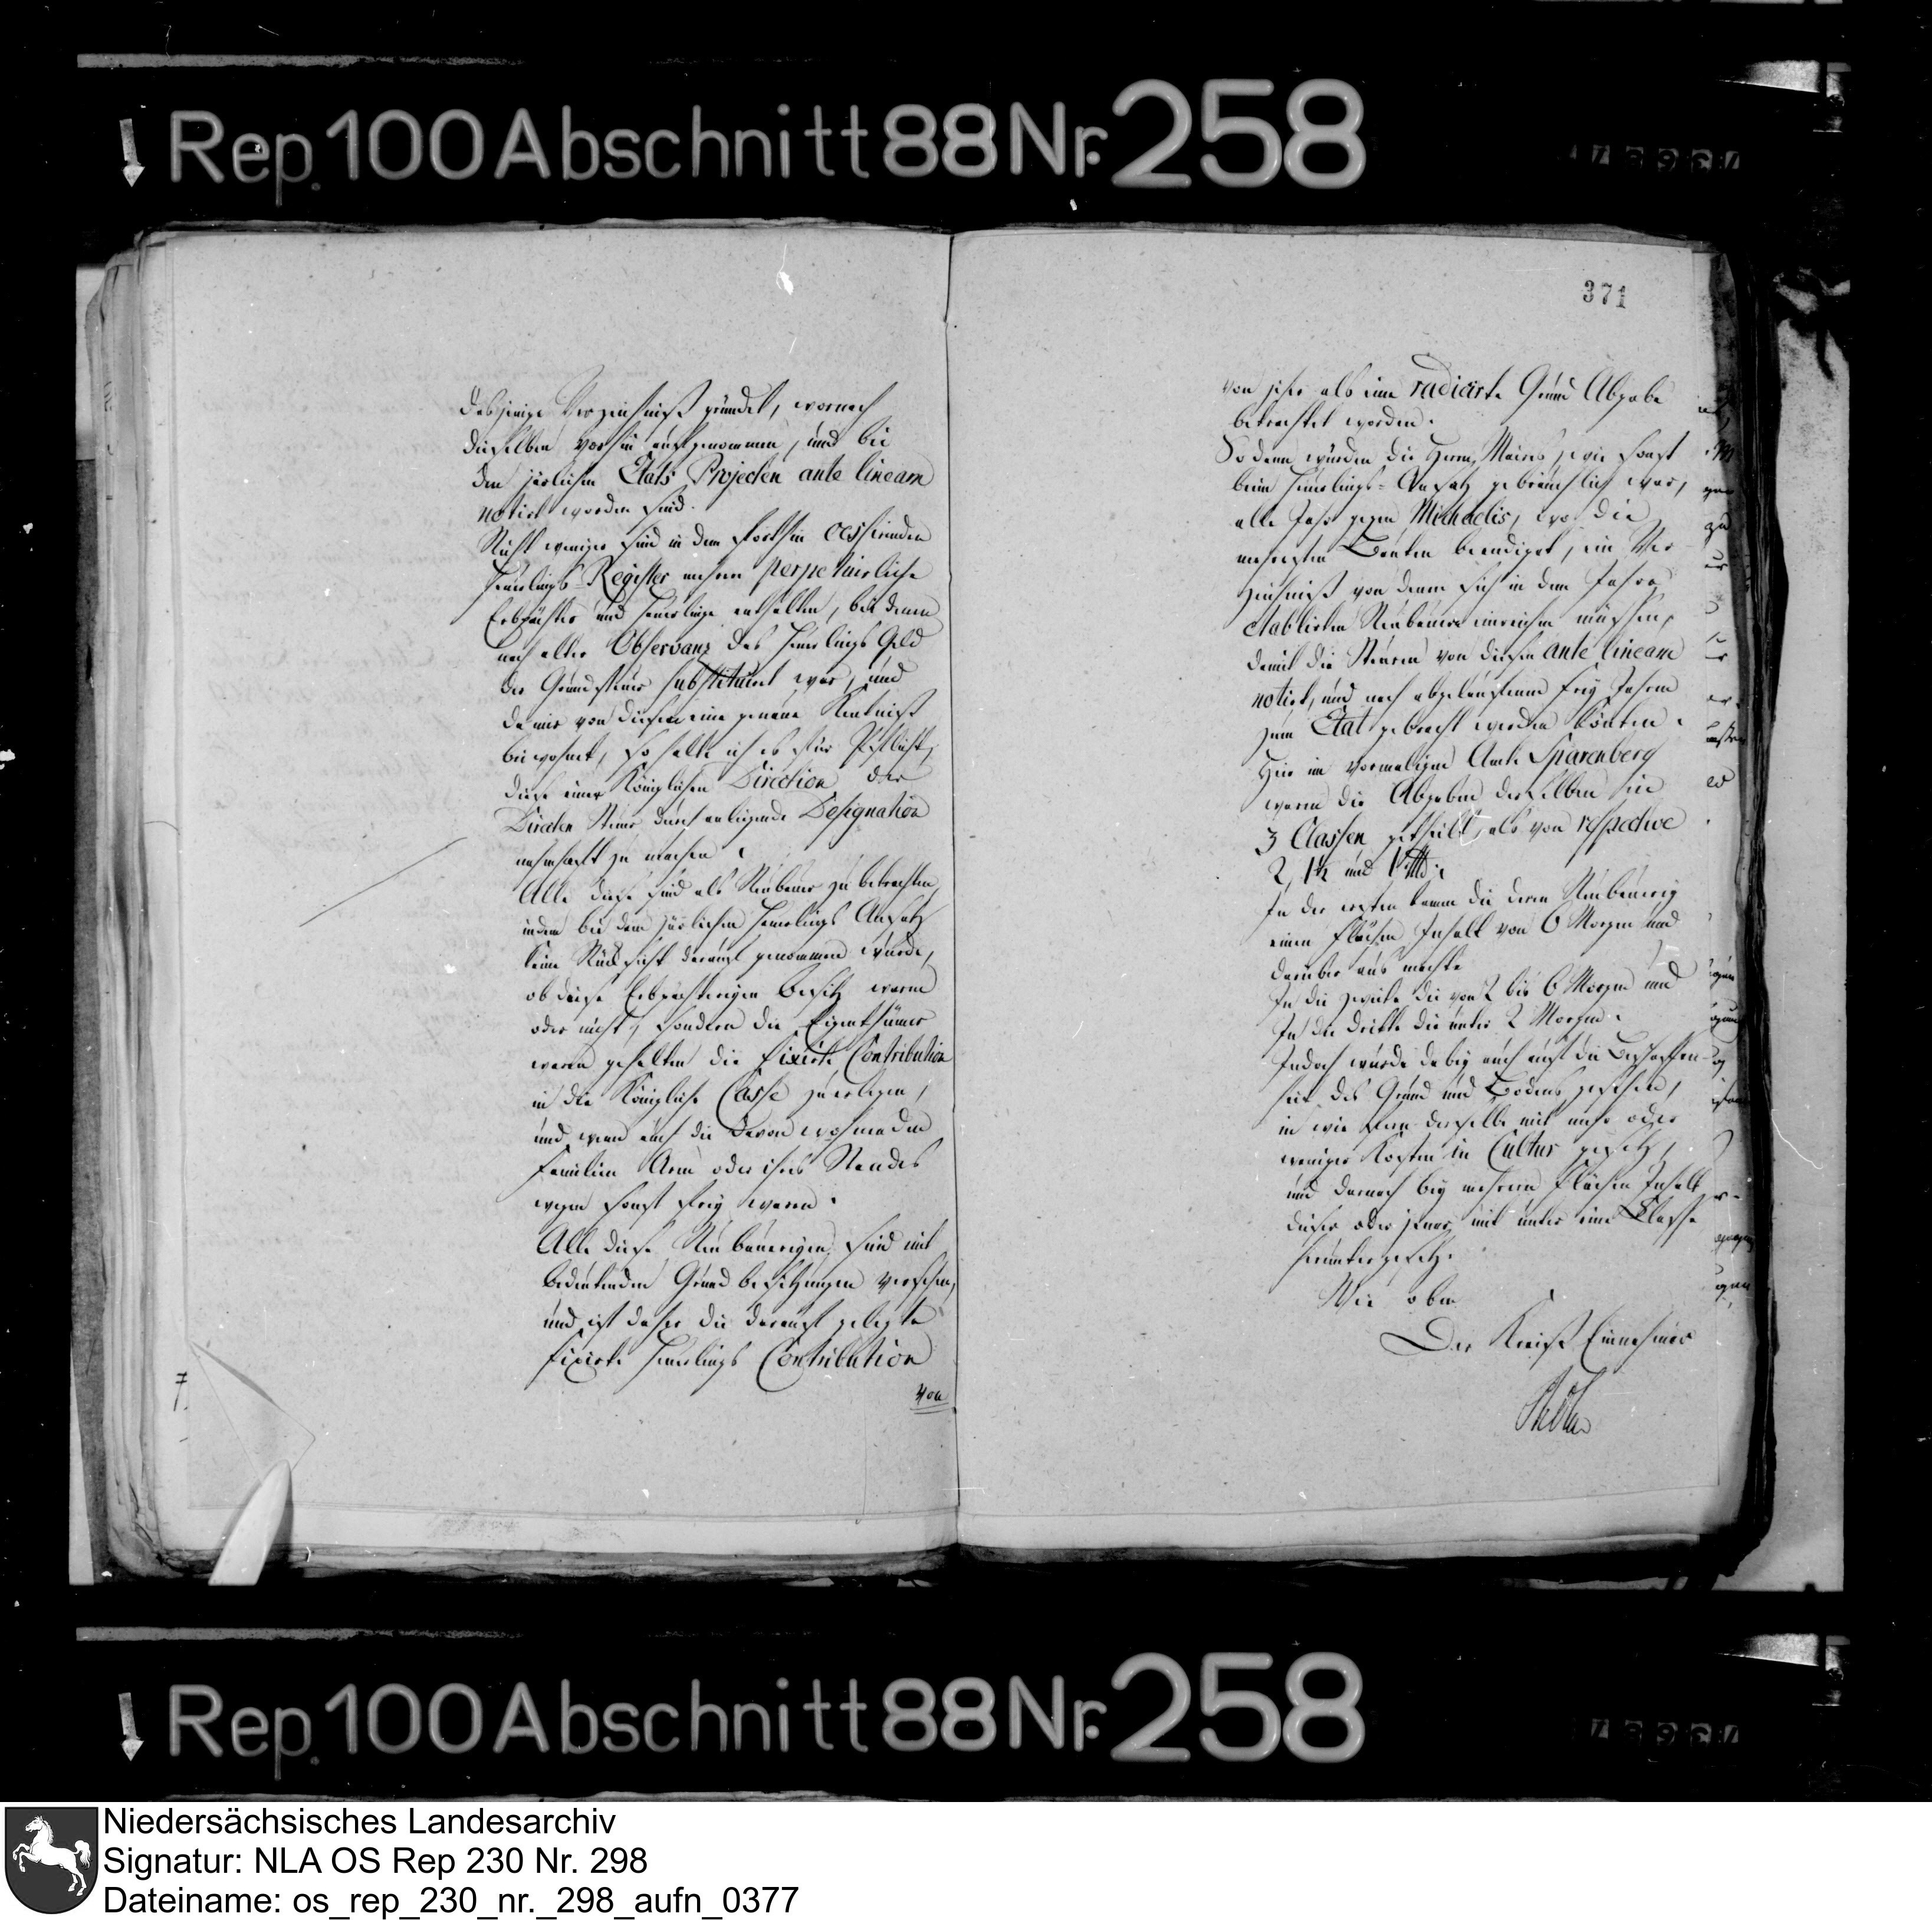 Rep. 100 Abschnitt 88 Nr. 258
371
dasjenige Verzeichniß gründet, wornach
dieselben vorhin aufgenommen, und bei
den järlichen Etats Projecten ante lineam
notirt worden sind.
Nicht weniger sind in dem forthin cessirenden
Heuerlings-Register mehrere perpetuirliche
Erbpächter und Heuerlinge enthalten, bei denen
nach alter Observanz das Heuerlings Geld
der Grundsteuer substituirt war, und
da mir von diesen eine genaue Kentniß
beiwohnet, so halte ich es für Pflicht,
diese einer Königlichen Direction der
Directen Steuer durch anliegende Designation
nahmhaft zu machen.
Alle diese sind als Neubauer zu betrachten,
indem bei dem järlichen Heuerlings Ansatz
keine Rücksicht darauf genommen wurde,
ob diese Erbpächterigen Besitz waren
oder nicht, sondern die Eigenthümer
waren gehalten die fixirte Contribution
in die Königliche Casse zu erlegen,
und wenn auch die davon wohnenden
Familien Arm oder ihres Standes
wegen sonst frey waren.
Alle diese Neubauereyen sind mit
bedeutenden Grundbesitzungen versehen,
und ist daher die darauf gelegte
fixirte Heuerlings Contribution
von
von jeher als eine radicirte Grund Abgabe
betrachtet worden.
Sodann würden die Herrn Maires so wie sonst
beim Heuerlings-Ansatz gebräuchlich war,
alle Jahr gegen Michaelis, wo die
mehresten Bauten beendiget, ein Ver-
zeichniß von denen sich in dem Jahre
etablirten Neubauern einreichen müssen,
damit die Steuern von diesen ante lineam
notirt, und nach abgelaufenen frey Jahren
zum Etat gebracht werden könten.
Hier im vormaligen Amte Sparenberg
waren die Abgaben derselben in
3 Classen getheilt, als von respective
2, 1½ und 1
In der ersten kamen die deren Neubauerey
einen Flächen Inhalt von 6 Morgen und
darüber aus machte
In die zweite die von 2 bis 6 Morgen und
In die dritte die unter 2 Morgen.
Jedoch wurde dabey auch auf die Beschaffen-
heit des Grund und Bodens gesehen,
in wie fern derselbe mit mehr oder
weniger Kosten in Cultur gesetzt,
und darnach bey mehrern Flächen Inhalt
dieser oder jener mit unter eine Classe
heruntergesetzt.
Wie oben
Der Kreiß Einnehmer
Rep. 100 Abschnitt 88 Nr. 258
Niedersächsisches Landesarchiv
Signatur: NLA OS Rep 230 Nr. 298
Dateiname: os_rep_230_nr._298_aufn_0377